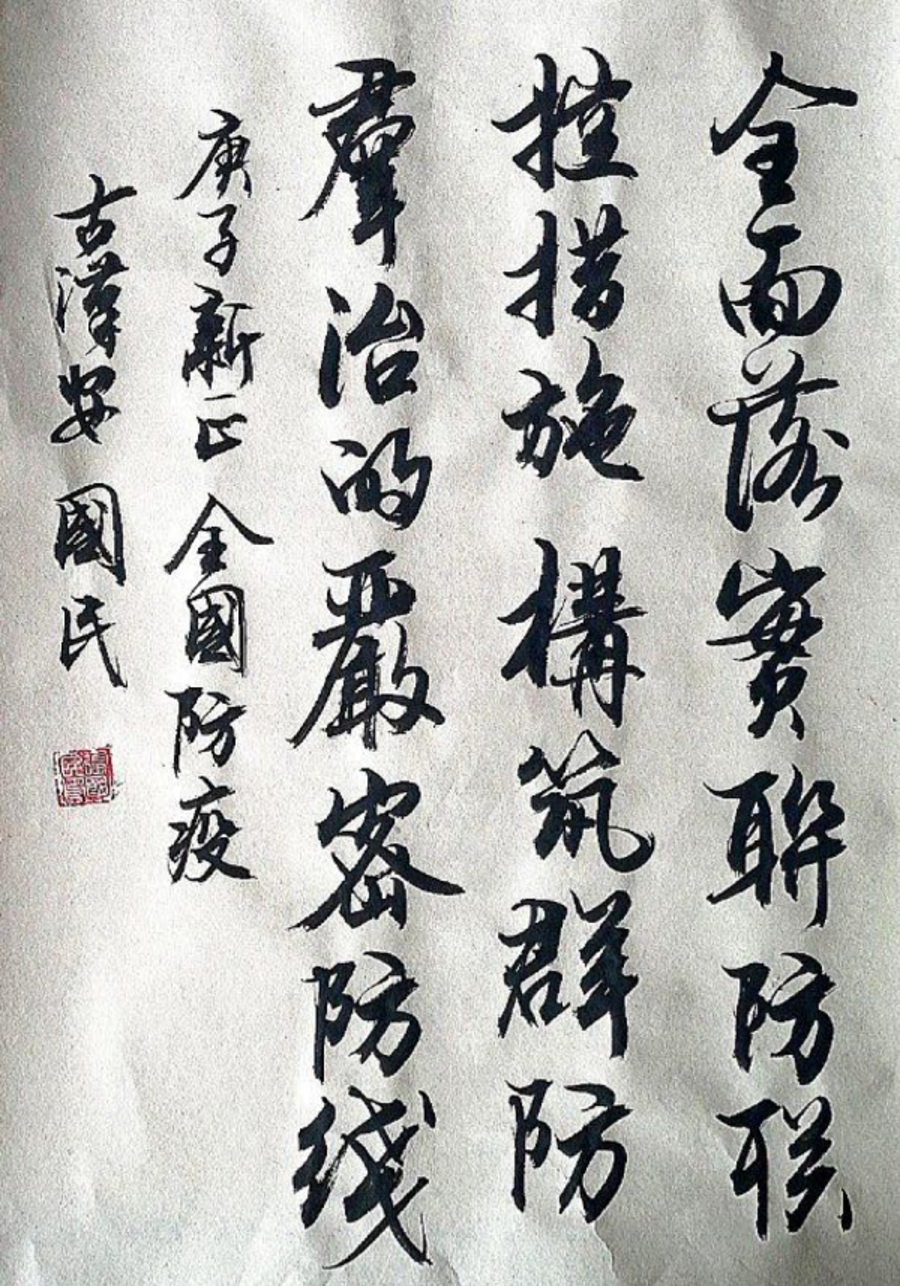 全面落實聯防联
控措施構筑群防
羣治的嚴密防线
庚子新正全國防疫
古漢安國民